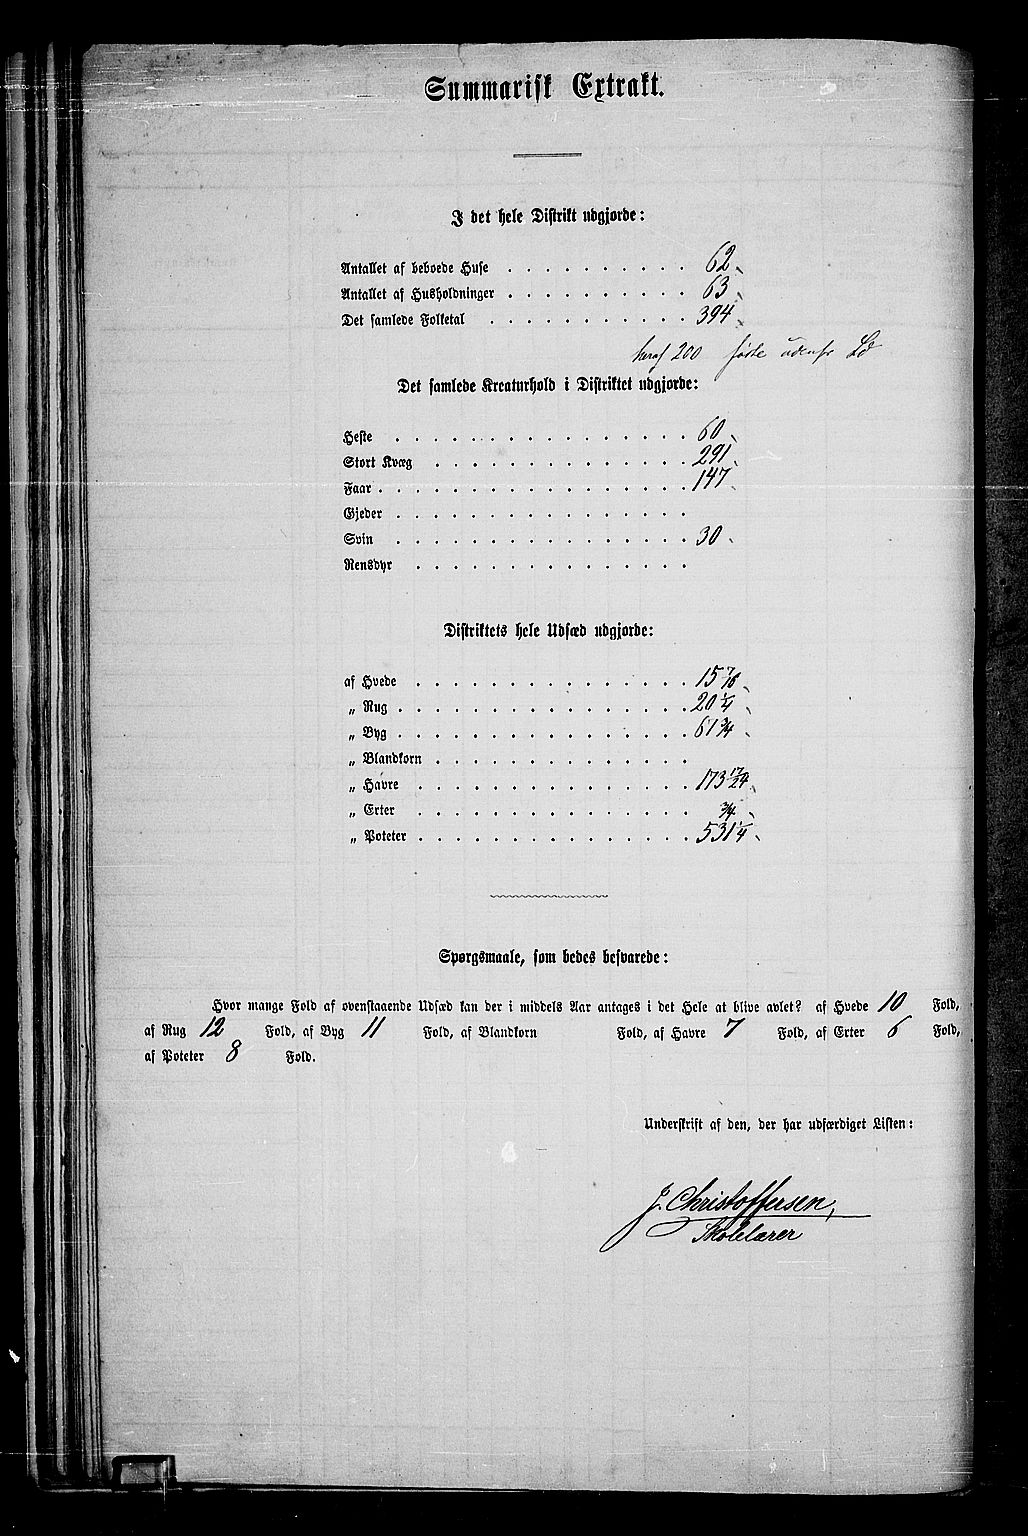 Summarisk Extrakt.
I det hele Distrikt udgjorde:
Antallet af beboede Huse . . . . . . . . . . 62
Antallet af Husholdninger . . . . . . . . . . 63
Det samlede Folketal . . . . . . . . . . . 394
heraf 200 fødte udenfor
Det samlede Kreaturhold i Distriktet udgjorde:
Heste . . . . . . . . . . . . . . . . 60
Stort Kvæg . . . . . . . . . . . . . . 291
Faar . . . . . . . . . . . . . . . . . 147
Gjeder . . . . . . . . . . . . . . . .
Svin . . . . . . . . . . . . . . . . 30
Rensdyr . . . . . . . . . . . . . . .
Distriktets hele Udsæd udgjorde:
af Hvede . . . . . . . . . . . . . . . 15 7/16
„ Rug . . . . . . . . . . . . . . . . 20 1/4
„ Byg . . . . . . . . . . . . . . . . 61 3/4
„ Blandkorn . . . . . . . . . . . . . .
„ Havre . . . . . . . . . . . . . . . 173 17/24
„ Erter . . . . . . . . . . . . . . . 3/4
„ Poteter . . . . . . . . . . . . . . . 531 1/4
Spørgsmaale, som bedes besvarede:
Hvor mange Fold af ovenstaaende Udsæd kan der i middels Aar antages i det Hele at blive avlet? af Hvede 10 Fold,
af Rug 12 Fold, af Byg 11 Fold, af Blandkorn Fold, af Havre 7 Fold, af Erter 6 Fold,
af Poteter 8 Fold.
Underskrift af den, der har udfærdiget Listen:
J. Christoffersen,
Skolelærer